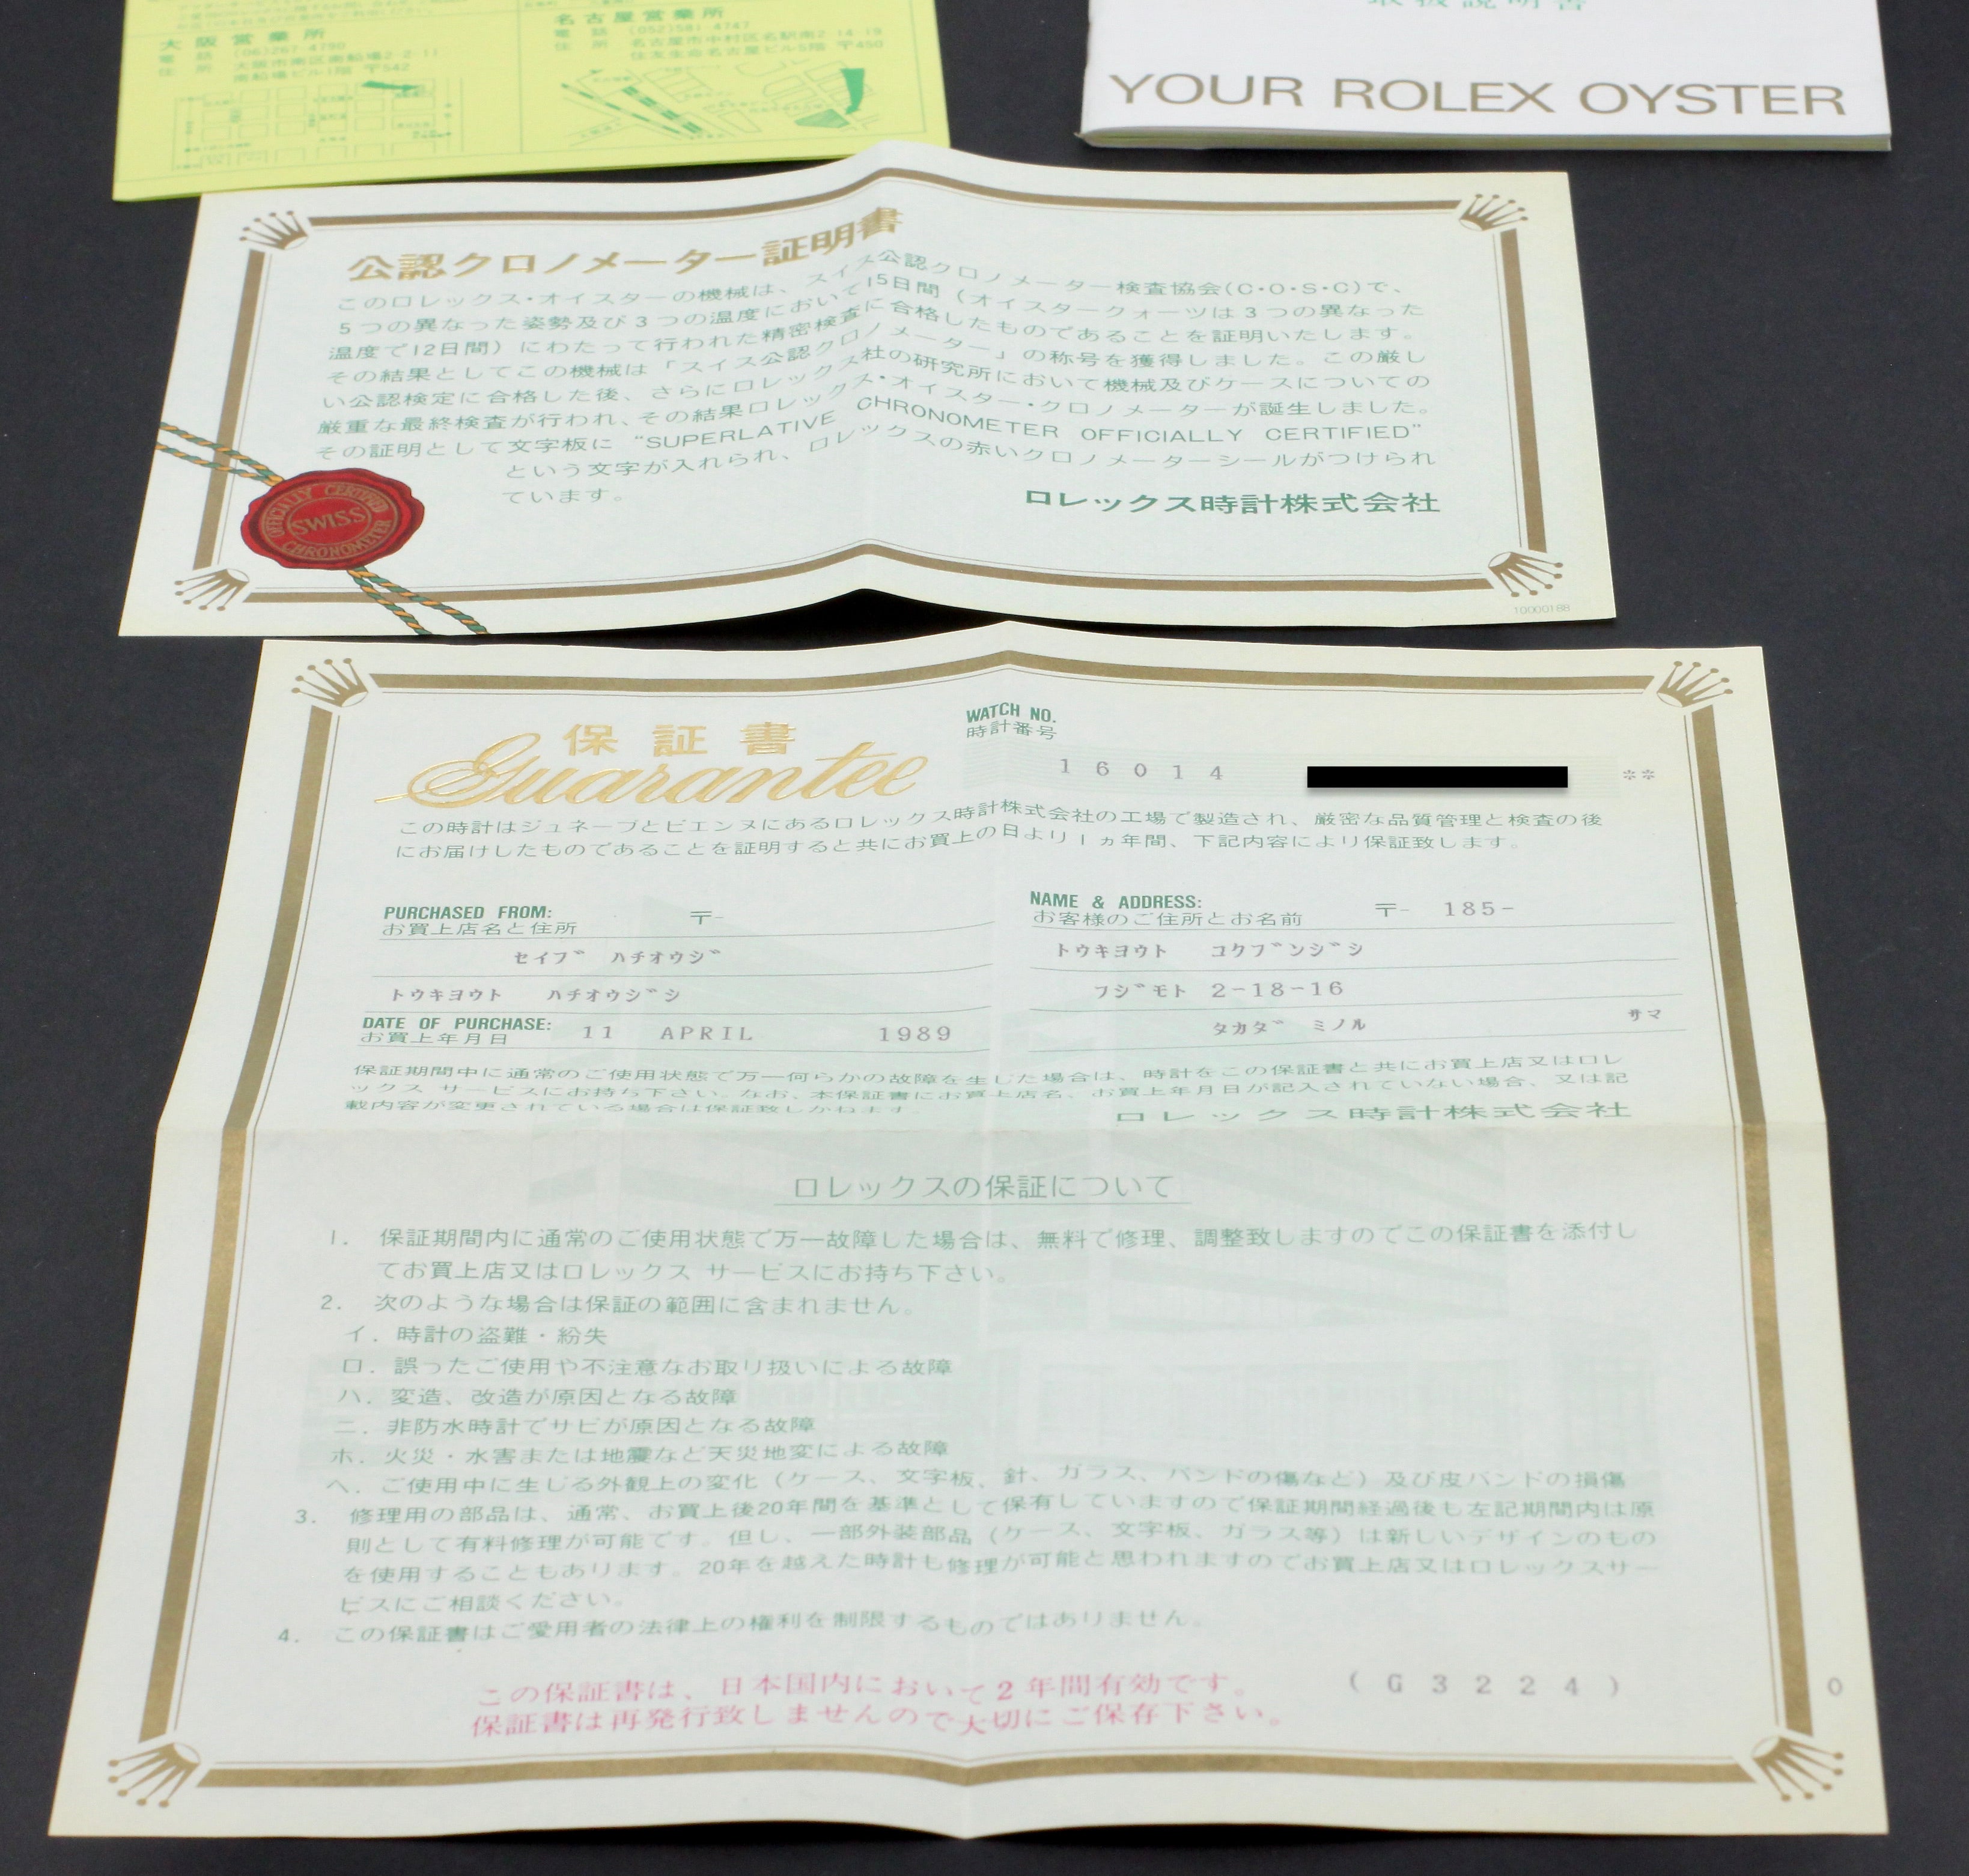 大阪営業所
電話 (06)267-4790
住所 大阪市南区南船場2-2-11
南船場ビル1階 〒542
名古屋営業所
電話 (052)581-4747
住所 名古屋市中村区名駅南2-14-19
住友生命名古屋ビル5階 〒450
取扱説明書
YOUR ROLEX OYSTER
公認クロノメーター証明書
このロレックス・オイスターの機械は、スイス公認クロノメーター検査協会(C・O・S・C)で、
5つの異なった姿勢及び3つの温度において15日間(オイスタークォーツは3つの異なった
温度で12日間)にわたって行われた精密検査に合格したものであることを証明いたします。
その結果としてこの機械は「スイス公認クロノメーター」の称号を獲得しました。この厳し
い公認検定に合格した後、さらにロレックス社の研究所において機械及びケースについての
厳重な最終検査が行われ、その結果ロレックス・オイスター・クロノメーターが誕生しました。
その証明として文字板に "SUPERLATIVE CHRONOMETER OFFICIALLY CERTIFIED"
という文字が入れられ、ロレックスの赤いクロノメーターシールがつけられ
ています。
ロレックス時計株式会社
OFFICIALLY CERTIFIED
SWISS
CHRONOMETER
10000188
保証書
Guarantee
WATCH NO.
時計番号
16014 **
この時計はジュネーブとビエンヌにあるロレックス時計株式会社の工場で製造され、厳密な品質管理と検査の後
にお届けしたものであることを証明すると共にお買上の日より1ヵ年間、下記内容により保証致します。
PURCHASED FROM: 〒-
お買上店名と住所
セイブ ハチオウジ
トウキヨウト ハチオウジシ
DATE OF PURCHASE: 11 APRIL 1989
お買上年月日
NAME & ADDRESS: 〒- 185-
お客様のご住所とお名前
トウキヨウト コクブンジシ
フジモト 2-18-16
タカダ ミノル サマ
保証期間中に通常のご使用状態で万一何らかの故障を生じた場合は、時計をこの保証書と共にお買上店又はロレ
ックス サービスにお持ち下さい。なお、本保証書にお買上店名、お買上年月日が記入されていない場合、又は記
載内容が変更されている場合は保証致しかねます。
ロレックス時計株式会社
ロレックスの保証について
1. 保証期間内に通常のご使用状態で万一故障した場合は、無料で修理、調整致しますのでこの保証書を添付し
てお買上店又はロレックス サービスにお持ち下さい。
2. 次のような場合は保証の範囲に含まれません。
イ. 時計の盗難・紛失
ロ. 誤ったご使用や不注意なお取り扱いによる故障
ハ. 変造、改造が原因となる故障
ニ. 非防水時計でサビが原因となる故障
ホ. 火災・水害または地震など天災地変による故障
ヘ. ご使用中に生じる外観上の変化(ケース、文字板、針、ガラス、バンドの傷など)及び皮バンドの損傷
3. 修理用の部品は、通常、お買上後20年間を基準として保有していますので保証期間経過後も左記期間内は原
則として有料修理が可能です。但し、一部外装部品(ケース、文字板、ガラス等)は新しいデザインのもの
を使用することもあります。20年を越えた時計も修理が可能と思われますのでお買上店又はロレックスサー
ビスにご相談ください。
4. この保証書はご愛用者の法律上の権利を制限するものではありません。
この保証書は、日本国内において2年間有効です。
保証書は再発行致しませんので大切にご保存下さい。
(G3224) 0